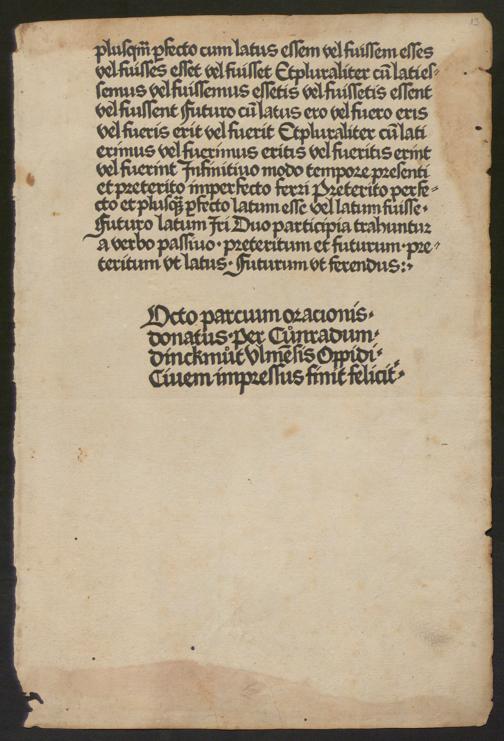 13
plusqm̄ ꝑfecto cum latus essem vel fuissem esses
vel fuisses esset vel fuisset Et pluraliter cū lati es⸗
semus vel fuissemus essetis vel fuissetis essent
vel fuissent Futuro cū latus ero vel fuero eris
vel fueris erit vel fuerit Et pluraliter cū lati
erimus vel fuerimus eritis vel fueritis erint
vel fuerint Infinitiuo modo tempore presenti
et preterito imperfecto ferri Preterito perfe⸗
cto et plusq̄ꝫ ꝑfecto latum esse vel latum fuisse·
Futuro latum Iri Duo participia trahuntur
a verbo passiuo · preteritum et futurum · pre⸗
teritum vt latus · Futurum vt ferendus:·
Octo parcium oracionis·
donatus· Per Cůnradum·
dinckmůt Vlmēsis Oppidi·
Ciuem impressus finit felicit᛬